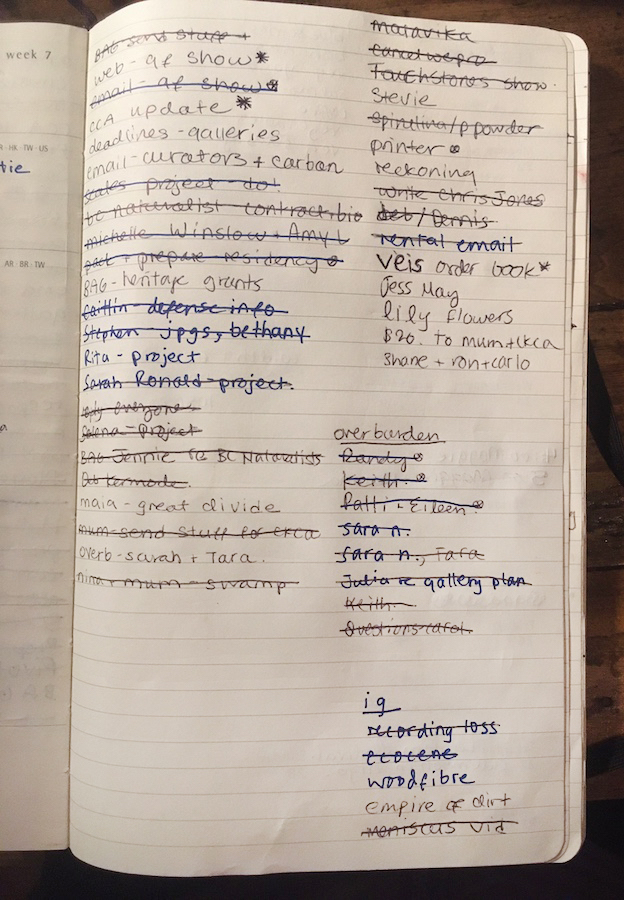 week 7
R · HK · TW · US
tie
AR · BR · TW
BAG send stuff
web - af show*
email - af show
CCA update *
deadlines - galleries
email - curators + carbon
scales project - do!
bc naturalist contract, bio
Michelle Winslow + Amy L
pack + prepare residency
BAG - heritage grants
Caitlin - defense info
Stephen jpgs, bethany
Rita - project
Sarah Ronald - project.
reply everyone
Selena - Project
BAG Jennie re BC Naturalists
Deb Kermode.
maia - great divide
mum - send stuff for
overb - sarah + Tara.
nina + mum - swamp
malavika
cancel wepro
Touchstones show.
Stevie
Spirulina/p powder
printer
reckoning
write Chris Jones
deb / Dennis
rental email
veis order book *
Jess May
lily flowers
$20. to mum +
Shane + ron + carlo
overburden
Randy
Keith.
Patti + Eileen.
sara n.
sara n., Tara
Julia re gallery plan
Keith
Questions carol.
ig
recording loss
ecocene
woodfibre
empire of dirt
meniscus vid